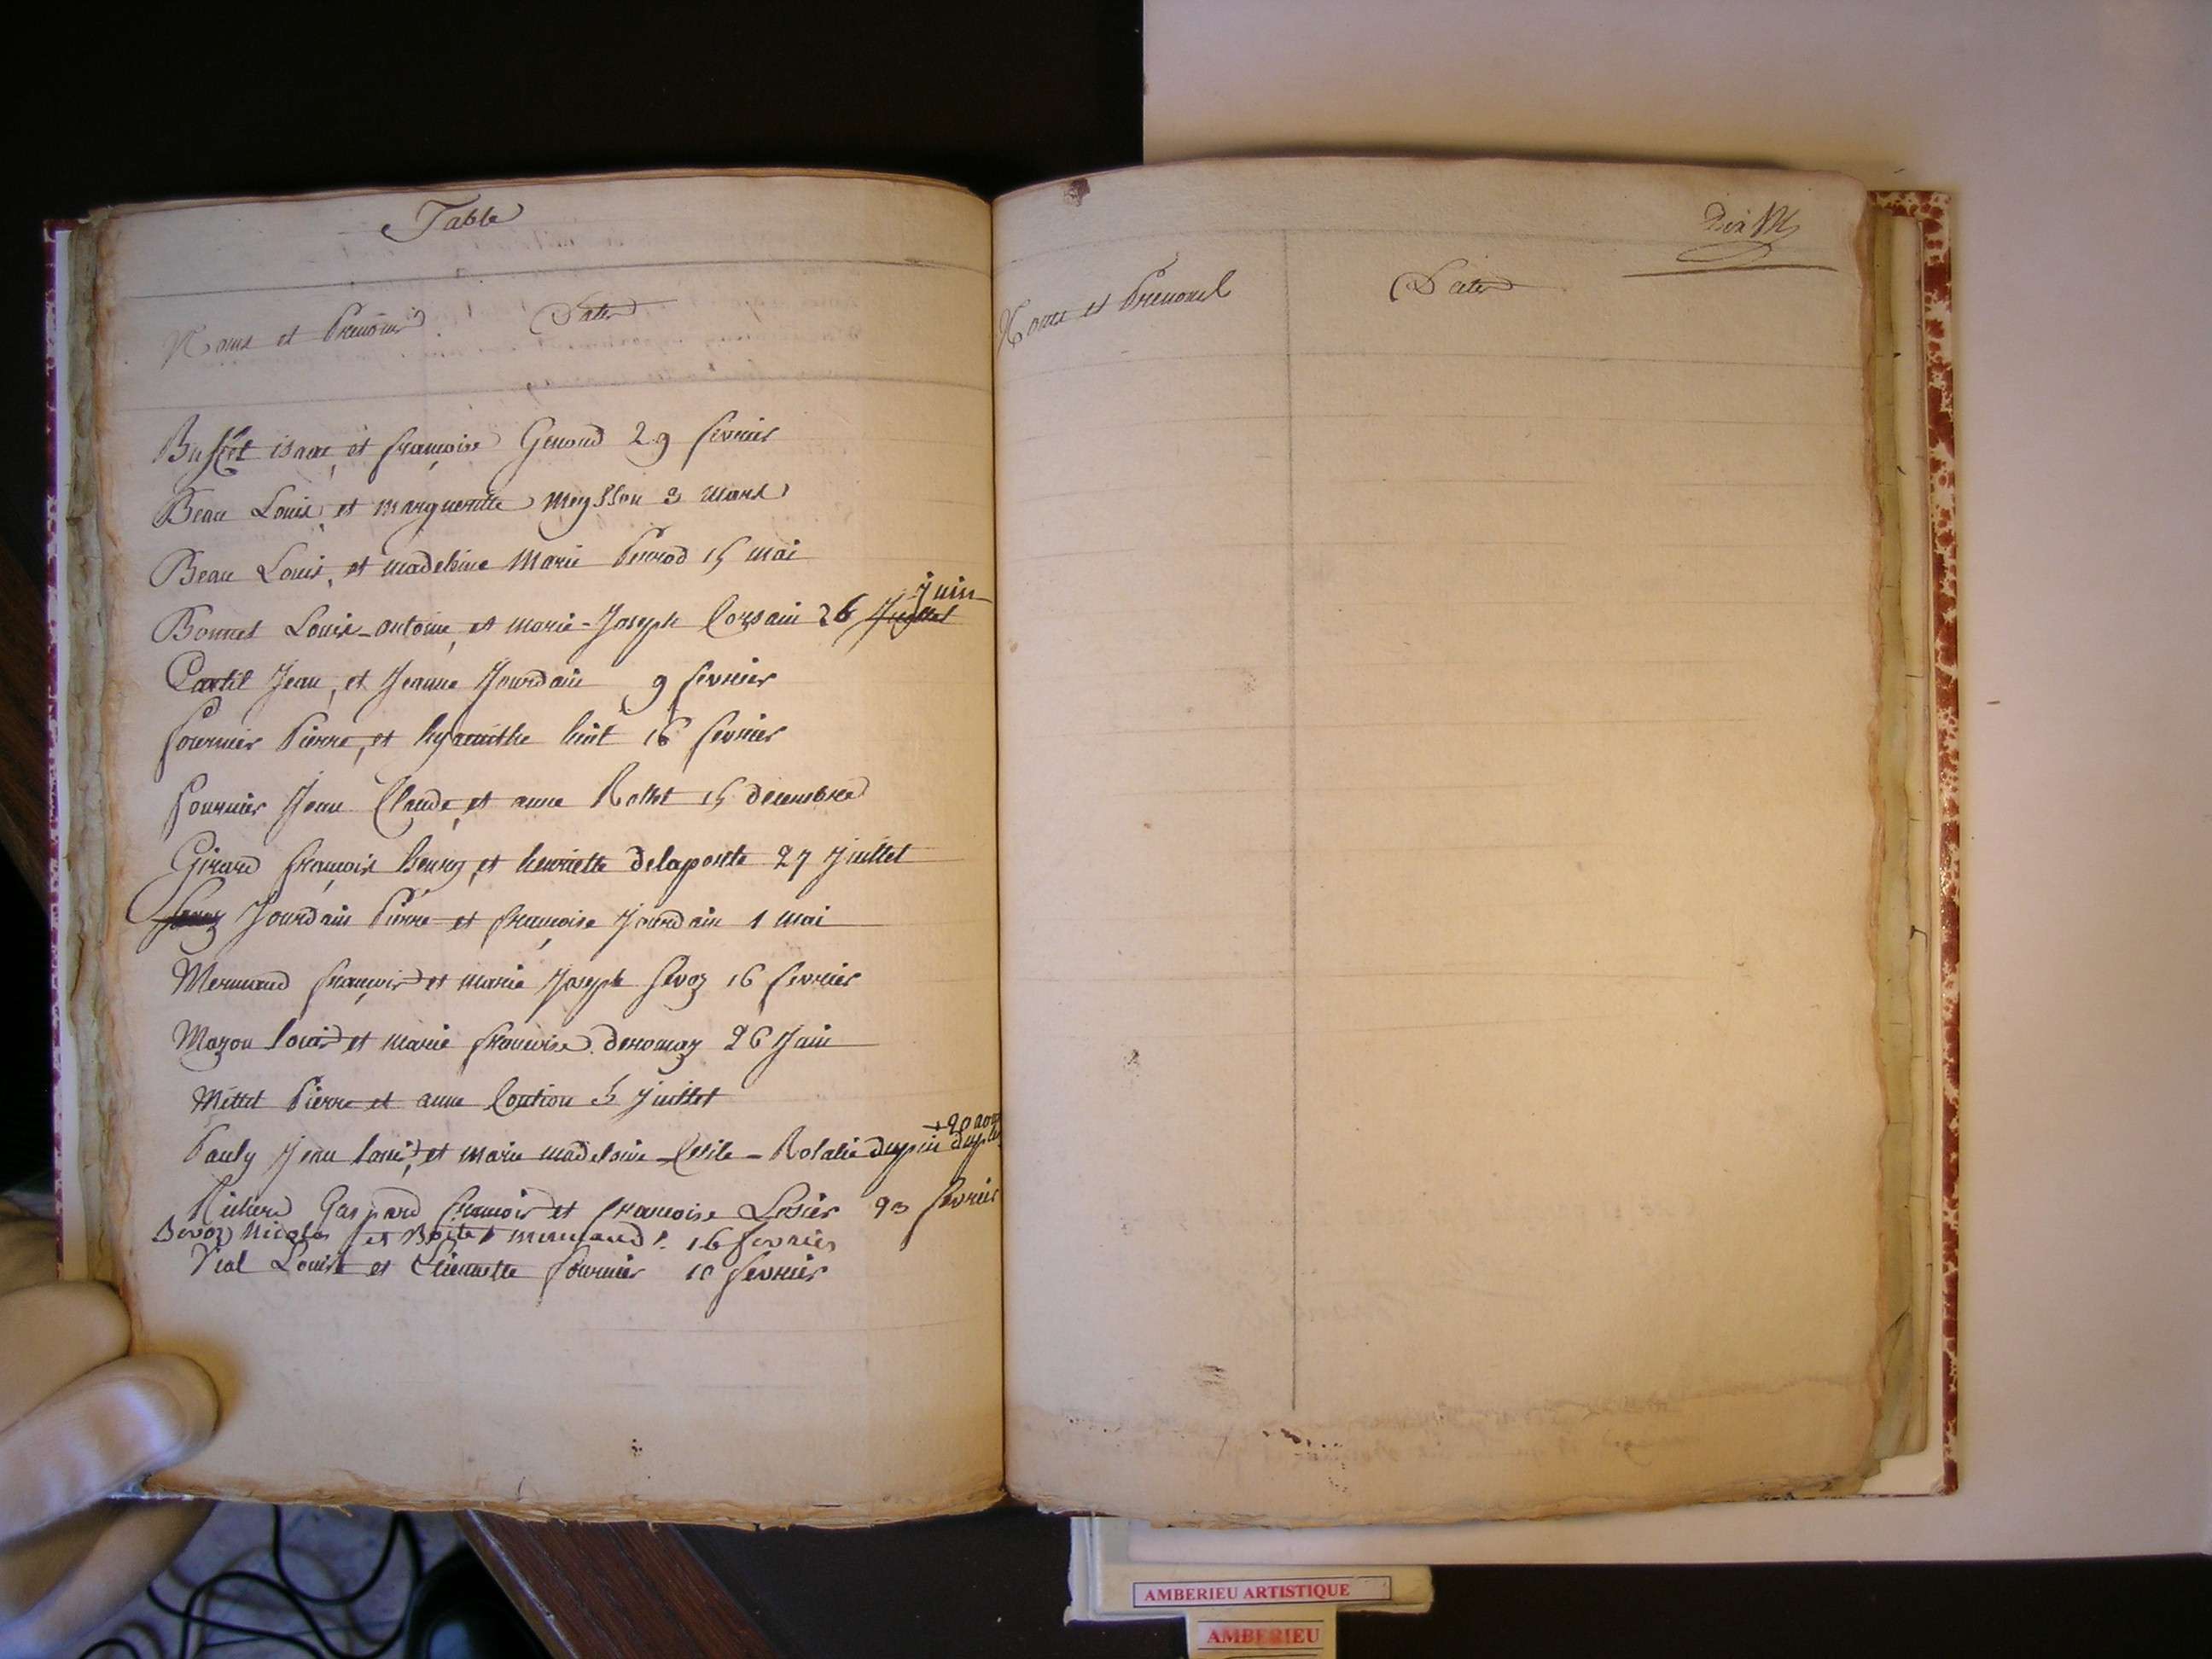 Table
Noms et Prenoms Dates
Buffet isaac, et françoise Genoud 29 fevrier
Beau Louis, et margueritte Meysson 3 Mars
Beau Louis, et madeleine Marie Perrod 15 mai
juin
Bonnet Louis-antoine, et marie-Joseph Corsain 26 Juillet
Cartil Jean, et Jeanne Jourdain 9 fevrier
fournier Pierre, et hyacinthe 16 fevrier
fournier Jean Claude, et anne Rollet 15 decembre
Girard françois henry, et henriette delaporte 27 Juillet
Jourdain Pierre et françoise Jourdain 1 mai
Mermand françois et marie Joseph Sevoz 16 fevrier
Mazon louis et marie françoise deromaz 26 Juin
Mittet Pierre et anne 5 Juillet
+ 20 aout
Pauly Jean louis, et marie madelaine Cecile - Rosalie dupui
Richerd Gaspard françois et françoise 23 fevrier
Sevoz Nicolas et mermand 16 fevrier
Vial Louis et Etiennette fournier 10 fevrier
Dix
Noms et Prenoms Dates
AMBERIEU ARTISTIQUE
AMBERIEU